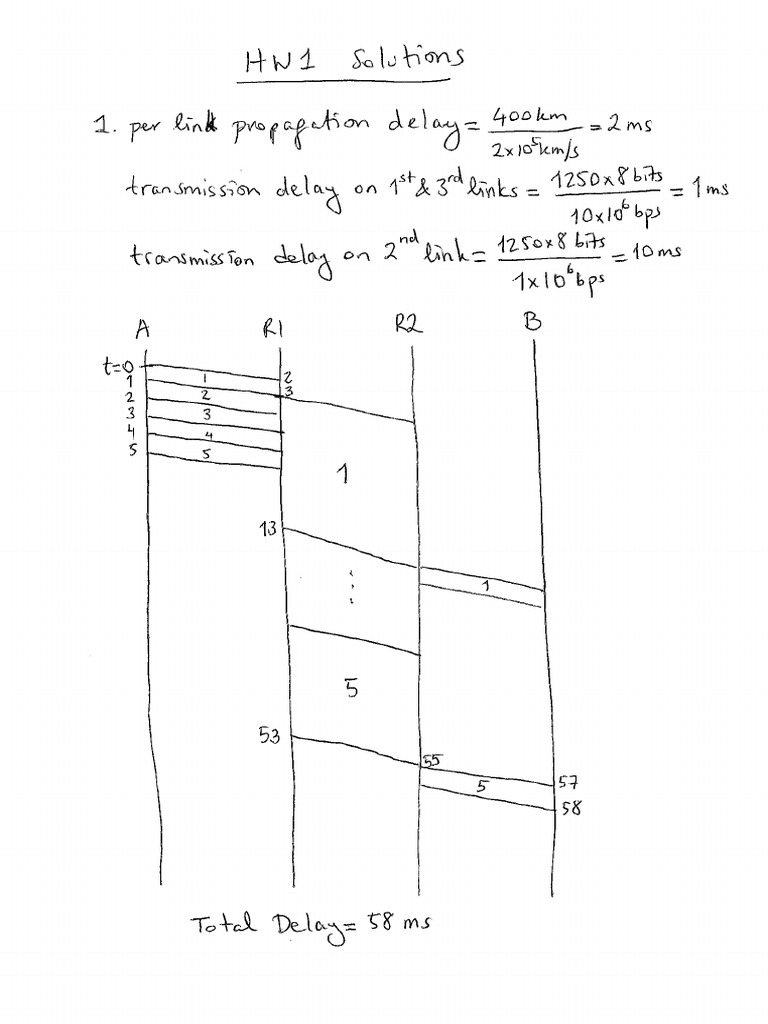 HW1 Solutions
1. per link propagation delay = 400km / 2x10^5 km/s = 2 ms
transmission delay on 1st & 3rd links = 1250x8 bits / 10x10^6 bps = 1 ms
transmission delay on 2nd link = 1250x8 bits / 1x10^6 bps = 10 ms
A R1 R2 B
t=0
1 1 2
2 2 3
3 3
4 4
5 5
1
13
1
5
53
55
5 57
58
Total Delay = 58 ms